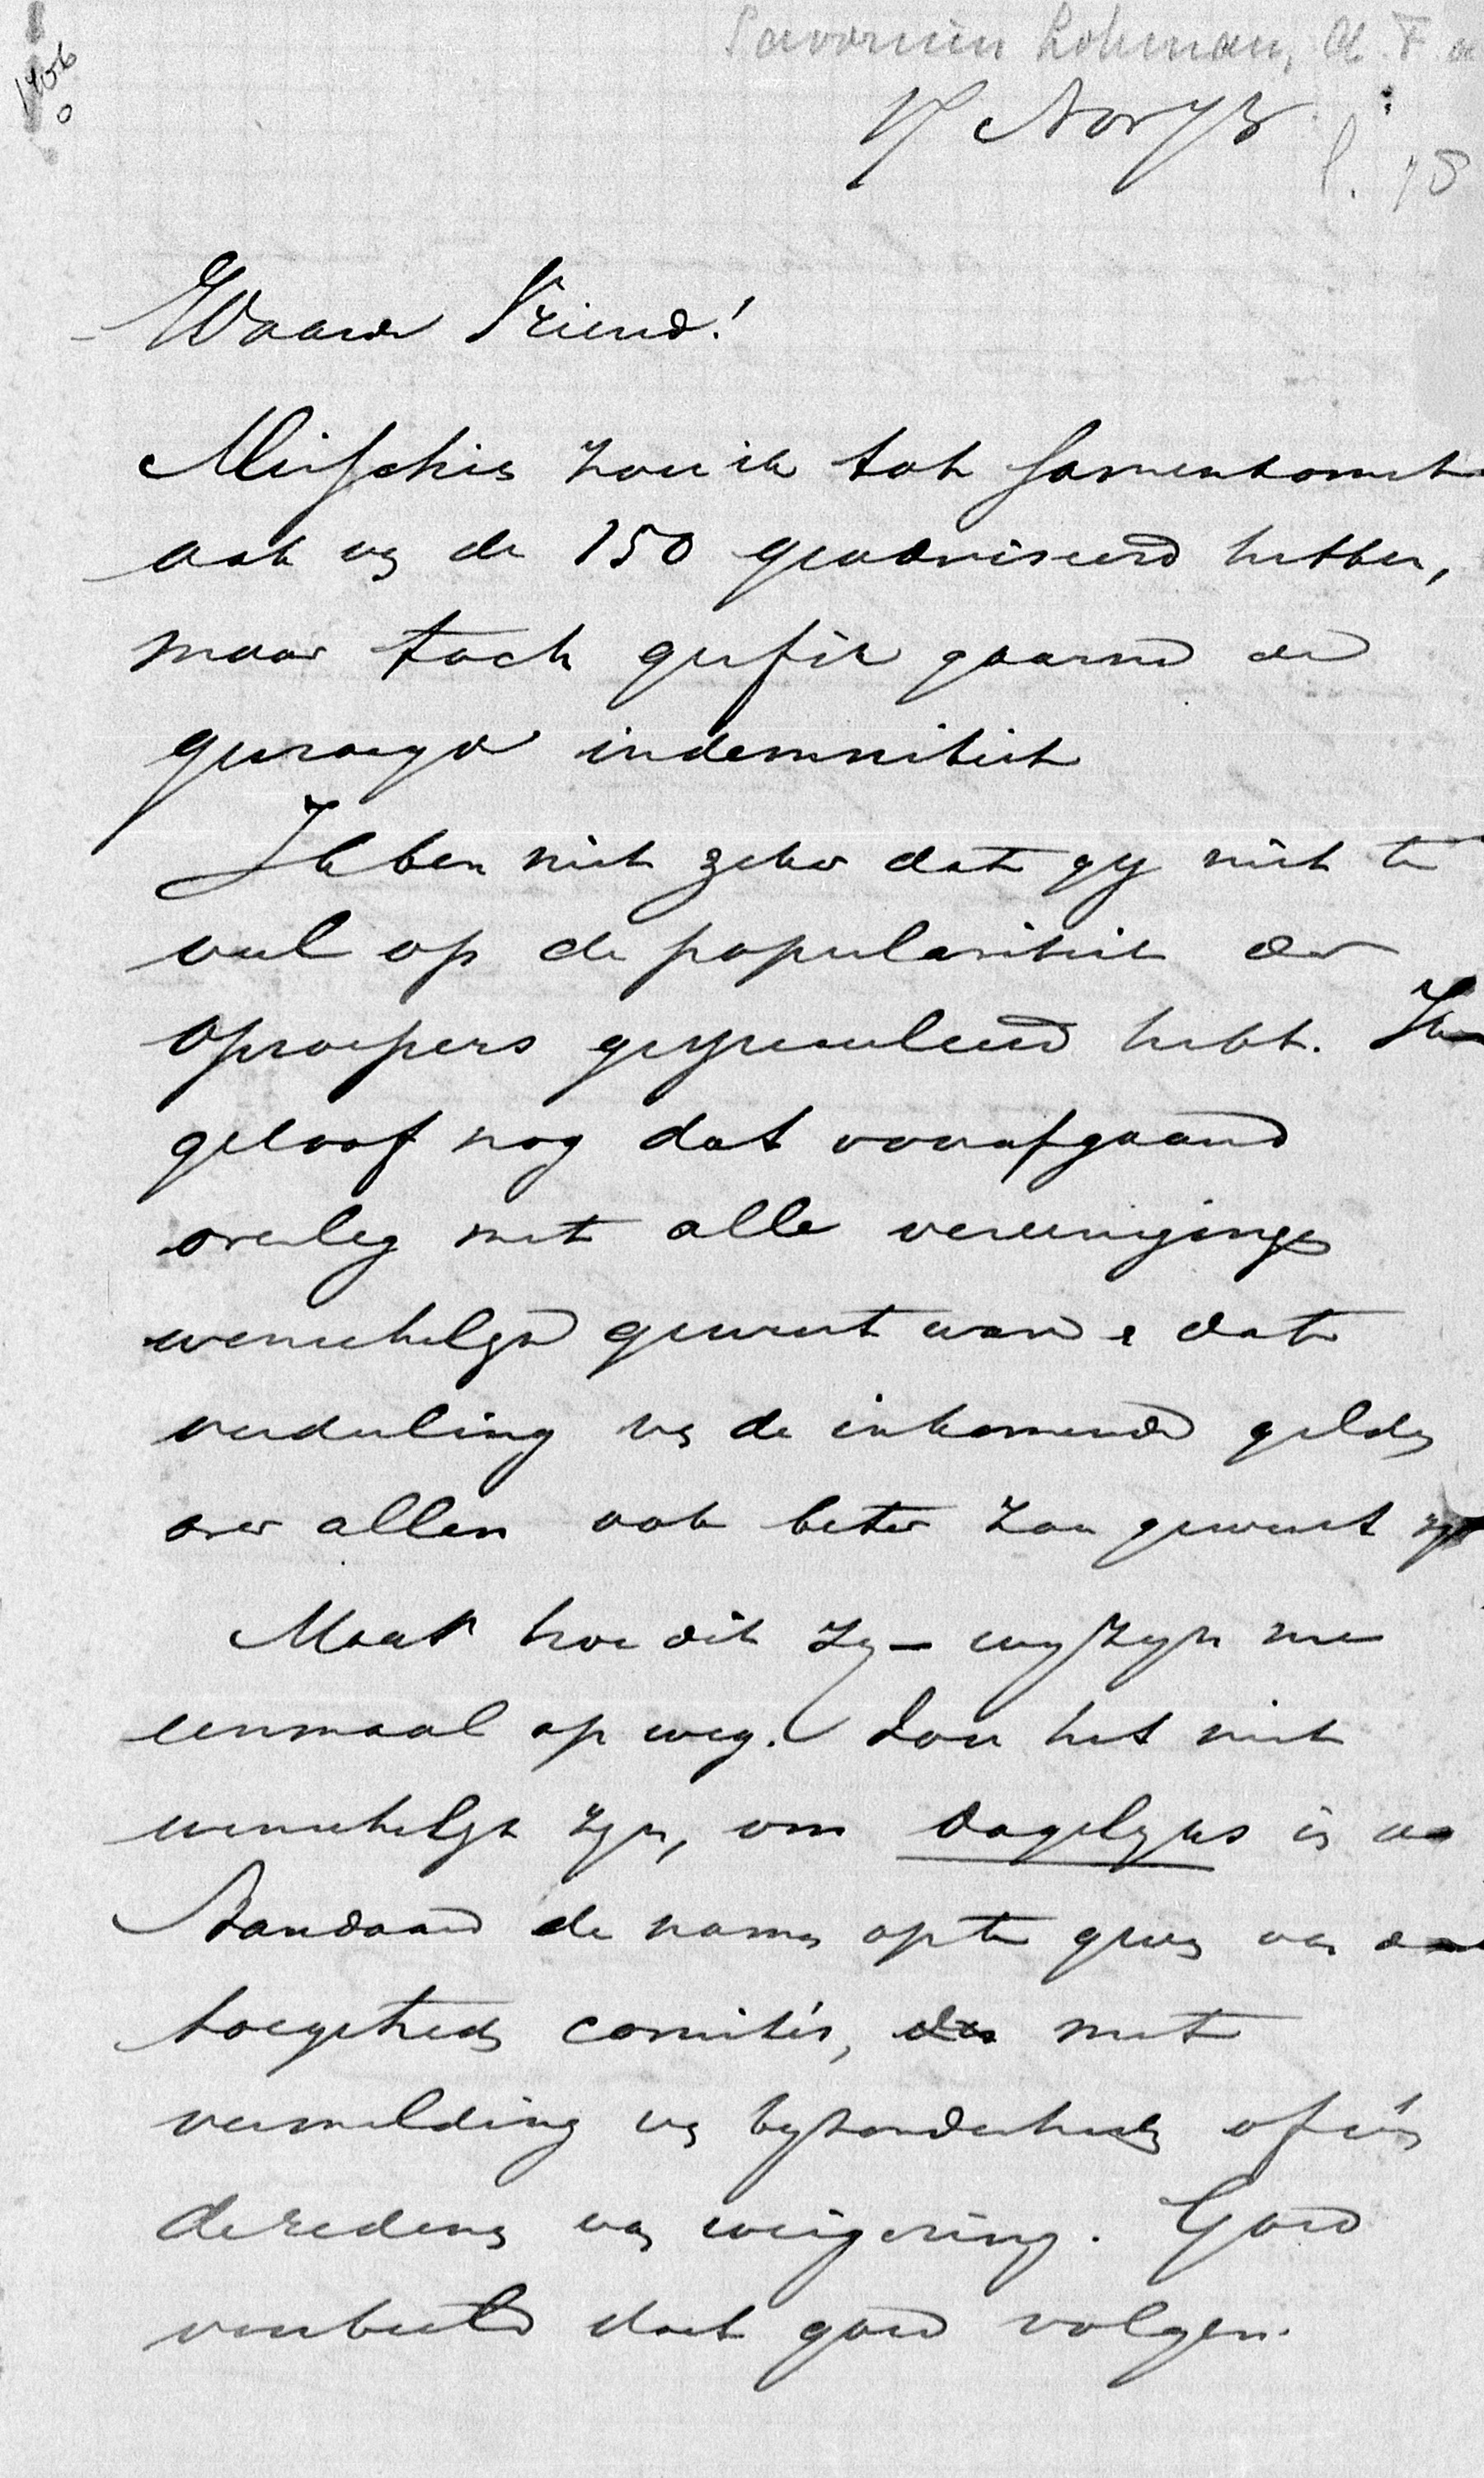 Savornin Lohman, A. F. de
1406
17 Nov 78
Waarde Vriend!
Misschien zou ik tot samenkomst
ook vn de 150 geadviseerd hebben,
maar toch geef ik gaarne de
gevraagde indemniteit
Ik ben niet zeker dat gy niet te
veel op de populariteit der
oproepers gespeculeerd hebt. Ik
geloof nog dat voorafgaand
overleg met alle vereenigingen
wenschelyk geweest ware & dat
verdeeling vn de inkomende gelden
over allen ook beter zou geweest zyn
Maar hoe dit zy – wy zyn nu
eenmaal op weg. Zou het niet
wenschelyk zyn, om dagelyks in de
Standaard de namen op te geven van de
toegetreden comité's, met
vermelding vn byzonderheden of v/d
de redenen van weigering. Goed
voorbeeld doet goed volgen.